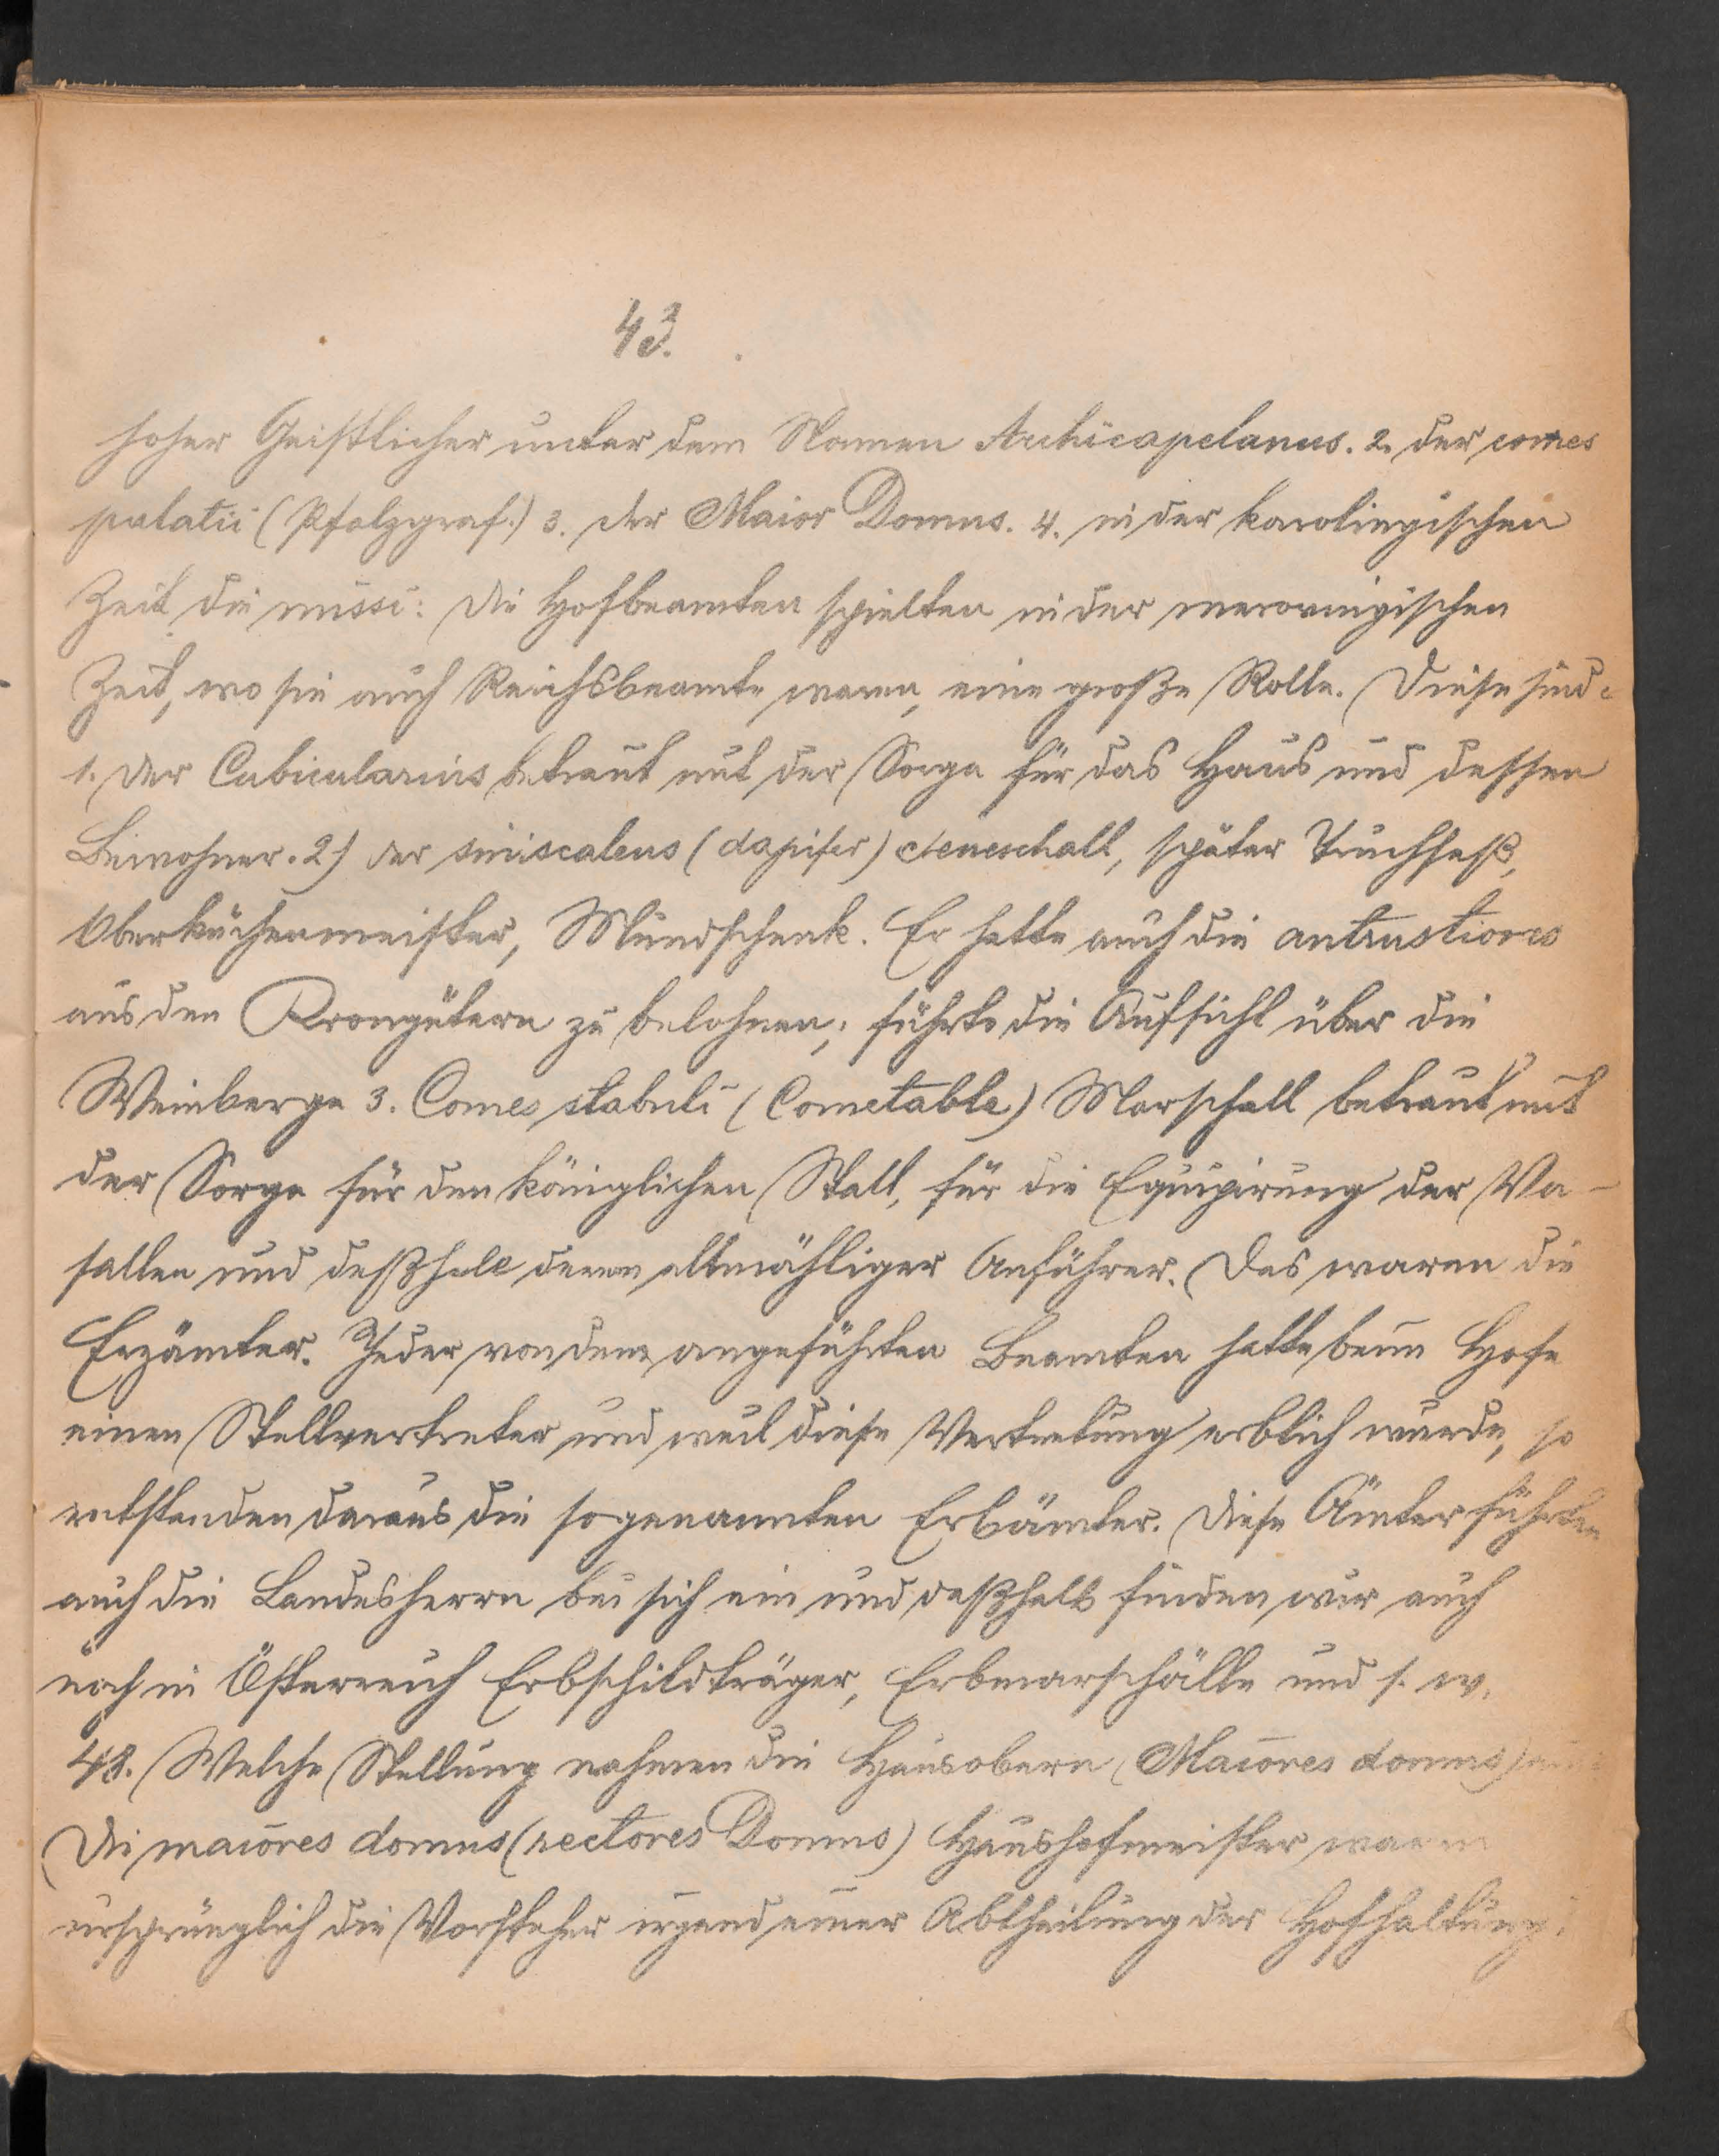 43.
hoher Geistlicher unter dem Namen Archicapelanus. 2. der comes
palatii (Pfalzgraf.) 3. der Maior Domus. 4. in der karolingischen
Zeit die missi: Die Hofbeamten spielten in der merovingischen
Zeit, wo sie auch Reichsbeamte waren, eine große Rolle. Diese sind:
1. Der Cubicularius betraut mit der Sorge für das Haus und dessen
Beiwohner. 2) der siniscalcus (dapifer) Seneschall, später Truchseß,
Oberküchenmeister, Mundschenk. Er hatte auch die antrustiones
aus den Krongütern zu belohnen, führte die Aufsicht über die
Weinberge 3. Comes stabuli (Cometable) Marschall betraut mit
der Sorge für den königlichen Stall, für die Equipirung der Va-
sallen und deßhalb deren allmähliger Anführer. Das waren die
Erzämter. Jeder von den angeführten Beamten hatte beim Hofe
einen Stellvertreter und weil diese Vertretung erblich wurde, so
entstanden daraus die sogenannten Erbämter. Diese Ämter führten
auch die Landesherrn bei sich ein und deßhalb finden wir auch
noch in Österreich Erbschildträger, Erbmarschälle und s. w.
48. Welche Stellung nahmen die Hausobern (Maiores domus)
Die maiores domus (rectores Domus) Haushofmeister waren
ursprünglich die Vorsteher irgend einer Abtheilung der Hofhaltung.